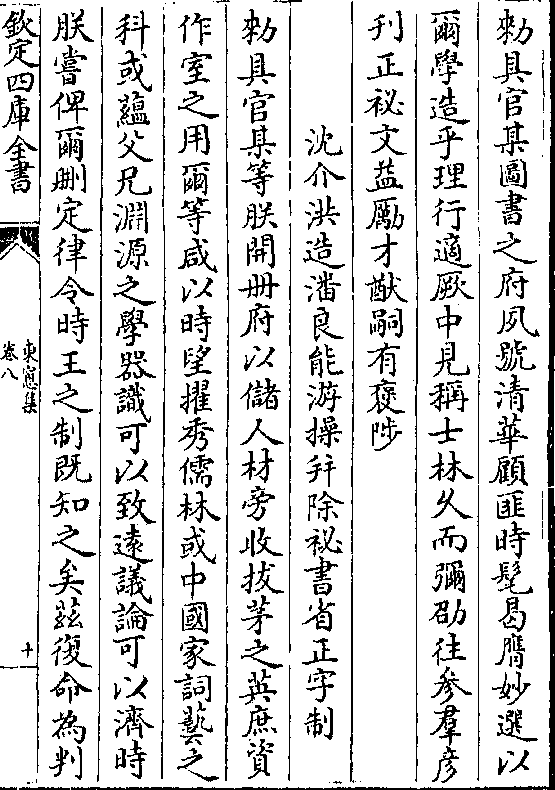 勑具官某圖書之府夙號清華顧匪時髦曷膺妙選以
爾學造乎理行適厥中見稱士林久而彌劭往參羣彦
刋正祕文益厲才猷嗣有褒陟
沈介洪造潘良能游操并除祕書省正字制
勑具官某等朕開冊府以儲人材旁收拔茅之英庶資
作室之用爾等咸以時望擢秀儒林或中國家詞藝之
科或藴父兄淵源之學器識可以致逺議論可以濟時
朕嘗俾爾刪定律令時王之制既知之矣兹復命為判
欽定四庫全書
東窻集
卷八
十